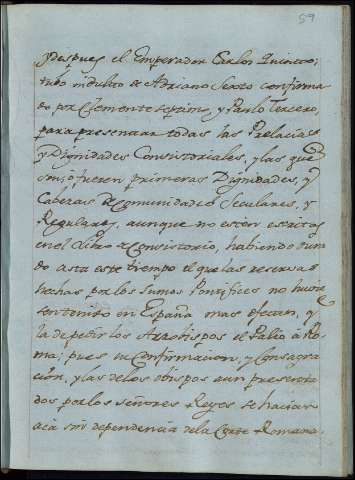 59
y despues el Emperador Carlos Quinto
tubo indulto de Adriano Sexto confirma
do por Clemente septimo, y Paulo Tercero,
para presentar todas las Prelacias
y Dignidades Consistoriales, y las que
son, ó fueren primeras Dignidades, y
Cabezas de comunidades Seculares, y
Regulares, aunque no esten escritas
en el Libro de Consistorio, habiendo dura
do asta este tiempo el que las reservas
hechas por los Sumos Pontifices no hubie
sen tenido en España mas efecto, y
la de pedir los Arzobispos el Palio à Ro
ma; pues su Confirmacion, y Consagra
cion, y las de los obispos aun presenta
dos por los señores Reyes se hacian
acà sin dependencia de la Corte Romana,